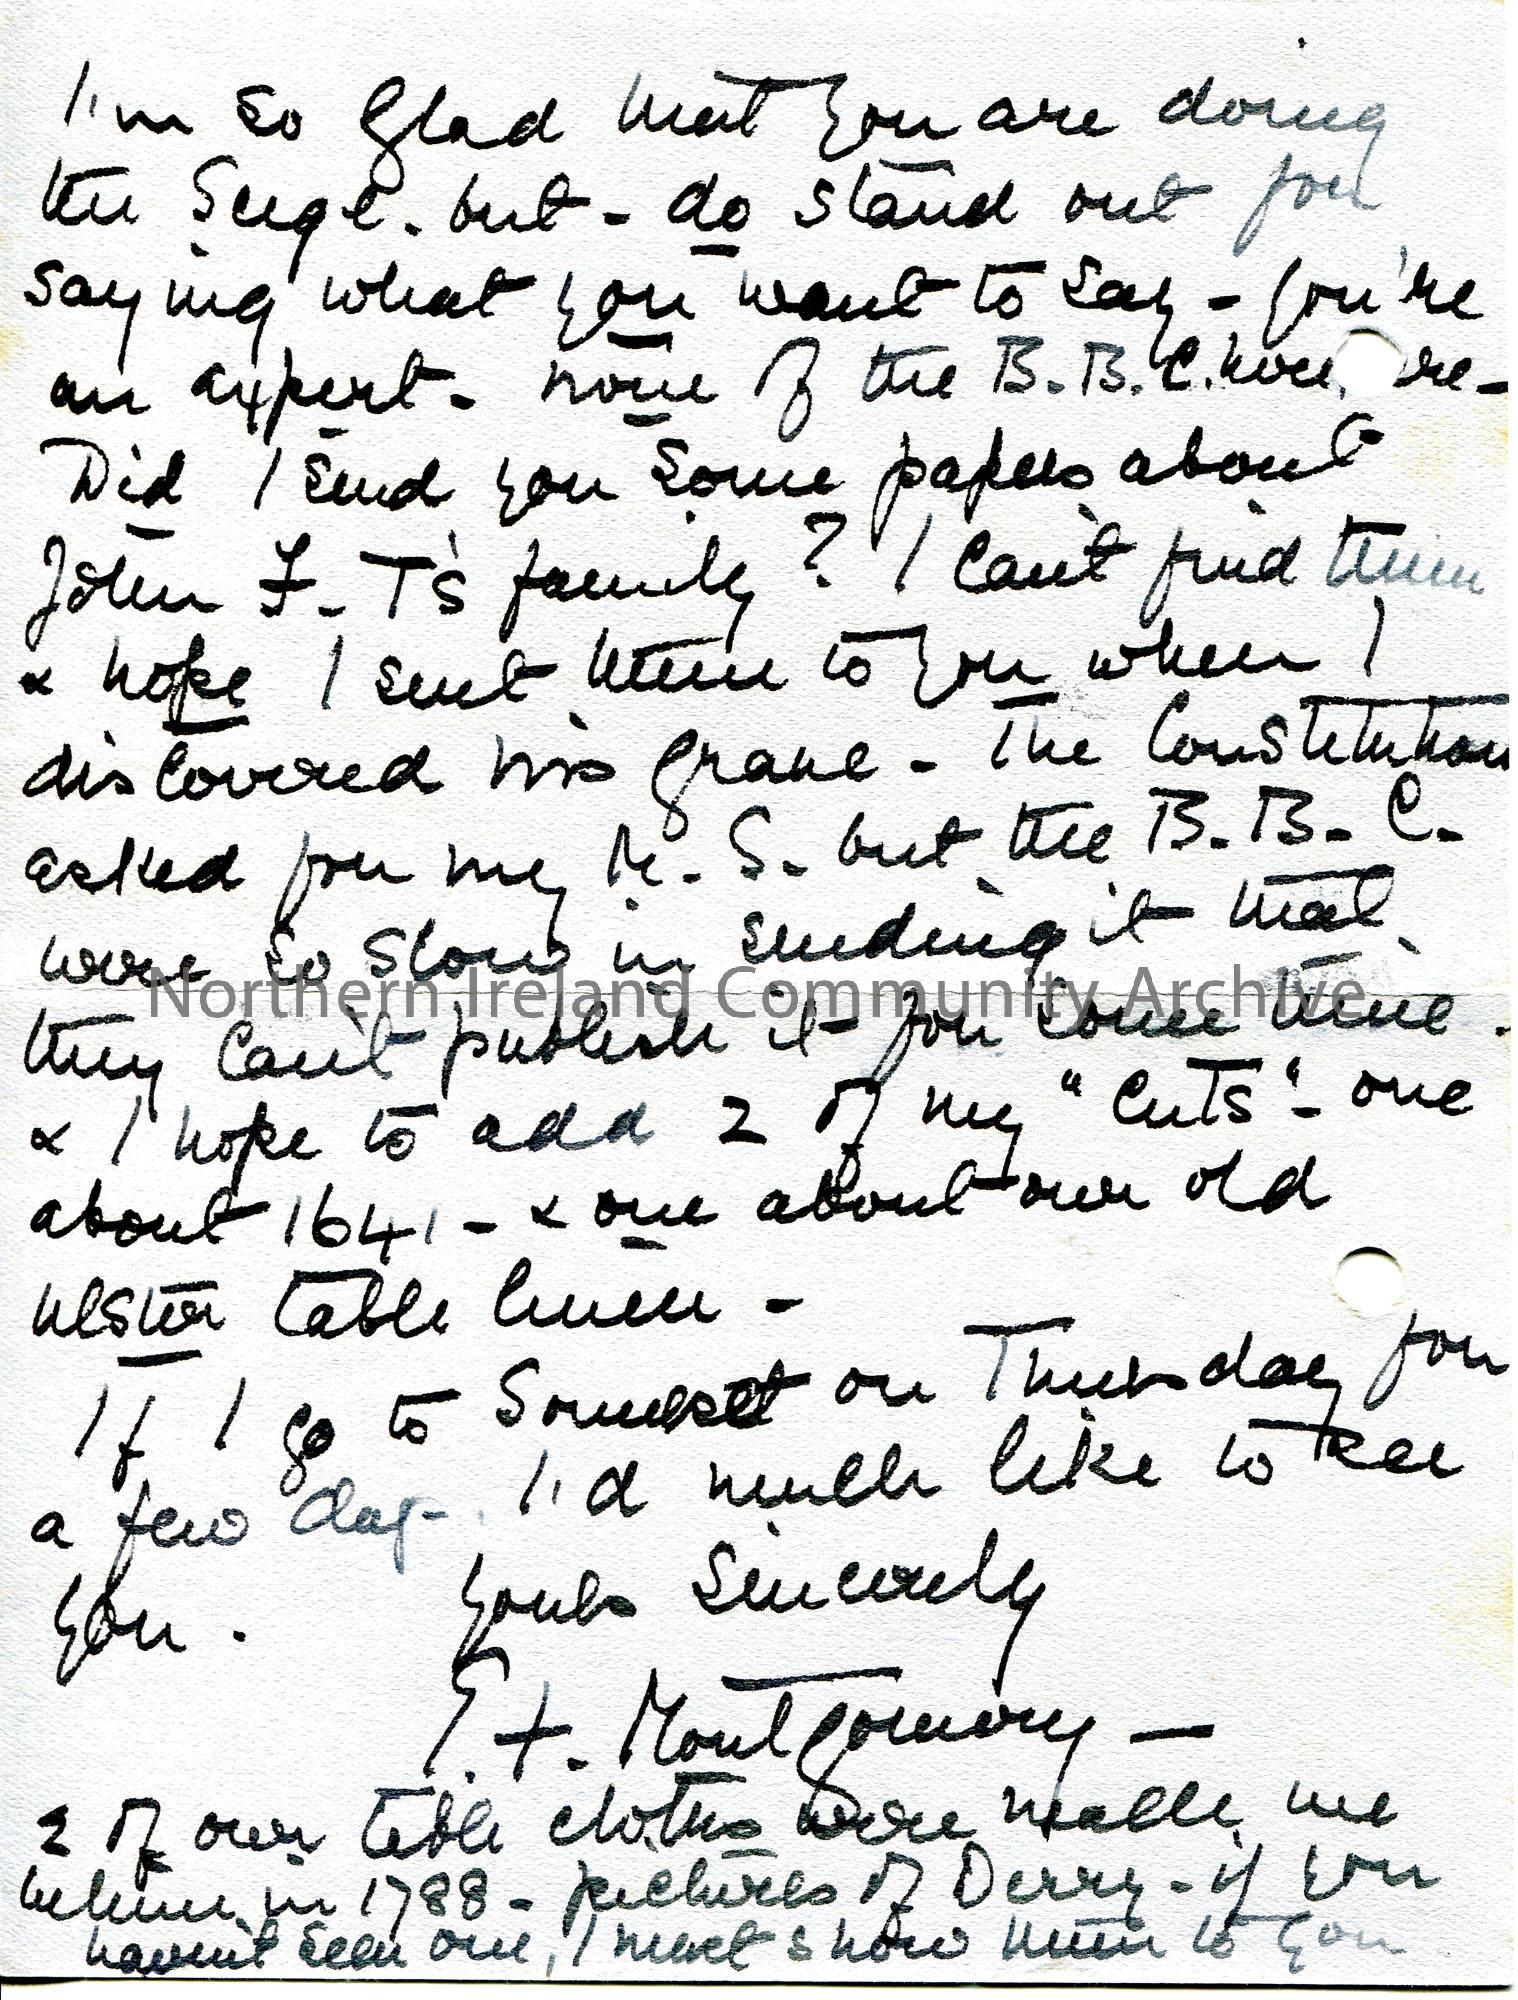 I'm so glad that you are doing
the Seige. but - do stand out for
saying what you want to say - you're
an expert - none of the B.B.C. here are -
Did I send you some papers about
John F. T's family? I can't find them
& hope I sent them to you when I
discovered his grave - The Constitution
asked for my M.S. but the B.B.C.
were so slow in sending it that
Northern Ireland Community Archive
they can't publish it for some time.
& I hope to add 2 of my "Cuts" - one
about 1641 - & one about our old
Ulster table linen -
If I go to Somerset on Thursday for
a few days. I'd much like to see
you. Yours Sincerely
E. F. Montgomery -
2 of our table cloths were made
in 1788 - pictures of Derry - if you
haven't seen one, I must show them to you